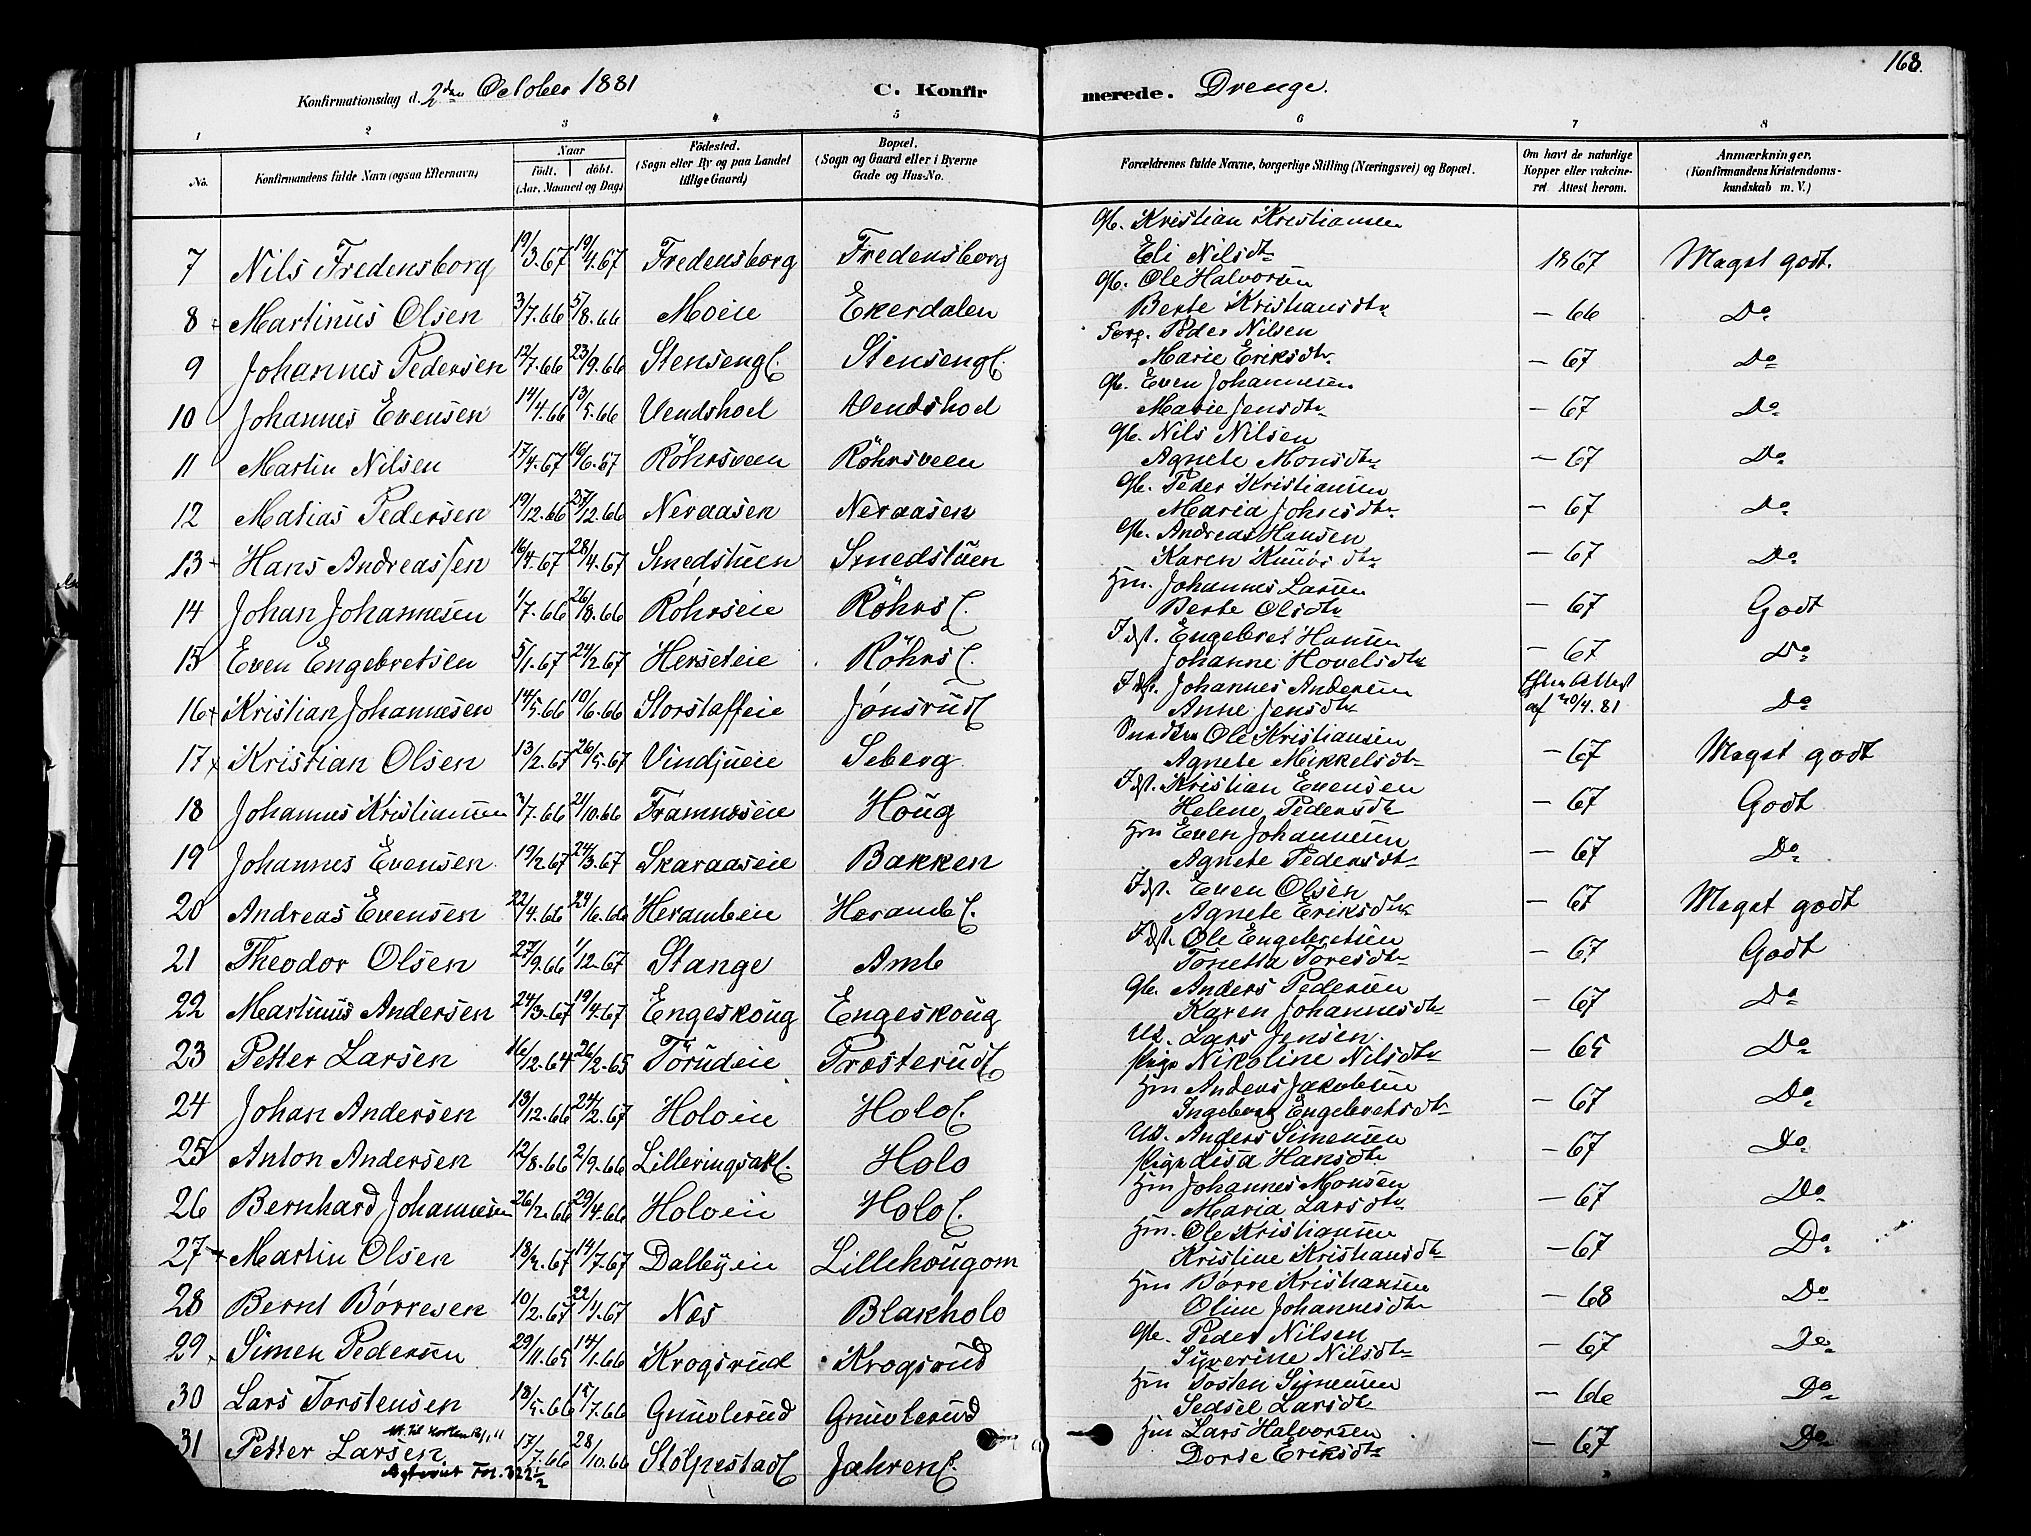 168.
Konfirmationsdag d. 2den October 1881 C. Konfirmerede. Drenge.
1 2 3 4 5 6 7 8
No. Konfirmandens fulde Navn (ogsaa Efternavn) Naar født. døbt. (Aar, Maaned og Dag) Fødested. (Sogn eller By og paa Landet tillige Gaard) Bopæl. (Sogn og Gaard eller i Byerne Gade og Hus-No. Forældrenes fulde Navne, borgerlige Stilling (Næringsvei) og Bopæl. Om havt de naturlige Kopper eller vaccineret Attest herom. Anmærkninger. (Konfirmandens Kristendomskundskab m. V.)
7 Nils Fredensborg 19/3.67 19/4.67 Fredensborg Fredensborg Gb. Kristian Kristiansen Eli Nilsdtr 1867 Meget godt.
8 Martinus Olsen 3/7.66 5/8.66 Moeie Ekerdalen Gb. Ole Halvorsen Berte Kristiansdtr - 66 Do
9 Johannes Pedersen 12/7.66 23/9.66 Stenseng Stenseng Forp. Peder Nilsen Marie Eriksdtr - 67 Do
10 Johannes Evensen 14/4.66 13/5.66 Vendshoel Vendshoel Gb. Even Johannesen Marie Jensdtr - 67 Do
11 Martin Nilsen 17/4.67 16/6.67 Röhrsveen Röhrsveen Gb. Nils Nilsen Agnete Monsdtr - 67 Do
12 Matias Pedersen 19/12.66 27/12.66 Neraasen Neraasen Gb. Peder Kristiansen Maria Johnsdtr - 67 Do
13 Hans Andreassen 16/4.67 28/4.67 Smedstuen Smedstuen Gb. Andreas Hansen Karen Knudsdtr - 67 Do
14 Johan Johannesen 1/7.66 26/8.66 Röhrseie Röhrs Hm. Johannes Larsen Berte Olsdtr - 67 Godt
15 Even Engebretsen 5/1.67 24/2.67 Herseteie Röhrs Idst. Engebret Hansen Johanne Hovelsdtr - 67 Do
16 Kristian Johannesen 14/5.66 10/6.66 Storstaffeie Jönsrud Idst. Johannes Andersen Anne Jensdtr Efter Attest af 20/4.81 Do
17 Kristian Olsen 13/2.67 26/5.67 Vindjueie Seberg Ole Kristiansen Agnete Mikkelsdtr - 67 Meget godt
18 Johannes Kristiansen 2/7.66 21/10.66 Framneseie Houg Idst. Kristian Evensen Helene Pedersdtr - 67 Godt
19 Johannes Evensen 19/2.67 24/3.67 Skaraaseie Bakken Hm Even Johannesen Agnete Pedersdtr - 67 Do
20 Andreas Evensen 22/4.66 24/6.66 Herambeie Heramb Idst. Even Olsen Agnete Eriksdtr - 67 Meget godt
21 Theodor Olsen 27/9.66 1/12.67 Stange Amb Idst. Ole Engebretsen Tonetta Toresdtr - 67 Godt
22 Martinus Andersen 24/3.67 19/4.67 Engeskoug Engeskoug Gb. Anders Pedersen Karen Johannesdtr - 67 Do
23 Petter Larsen 16/12.64 26/2.65 Törudeie Trosterud Ul. Lars Jensen. Pige Nikoline Nilsdtr - 65 Do
24 Johan Andersen 13/12.66 24/2.67 Holoeie Holo Hm Anders Jakobsen Ingeborg Engebretsdtr - 67 Do
25 Anton Andersen 12/8.66 2/9.66 Lilleringsak. Holo Ul. Anders Simensen Pige Lisa Hansdtr - 67 Do
26 Bernhard Johannesen 26/2.66 29/4.66 Holoeie Holo Hm Johannes Monsen Maria Larsdtr - 67 Do
27 Martin Olsen 18/4.67 14/7.67 Dalbyeie Lillehougom Hm. Ole Kristiansen Kristine Kristiansdtr - 67 Do
28 Bernt Börresen 10/2.67 22/4.67 Nes Blakholo Hm Börre Kristiansen Oline Johannesdtr - 68 Do
29 Simen Pedersen 29/11.65 14/1.66 Krogsrud Krogsrud Gb. Peder Nilsen Syverine Nilsdtr - 67 Do
30 Lars Torstensen 18/5.66 15/7.66 Gnuvlerud Gnuvlerud Hm Tosten Simensen Sedsel Larsdtr - 66 Do
31 Petter Larsen 17/7.66 28/10.66 Stölpestad Jahren Hm Lars Halvorsen Dorte Eriksdtr - 67 Do